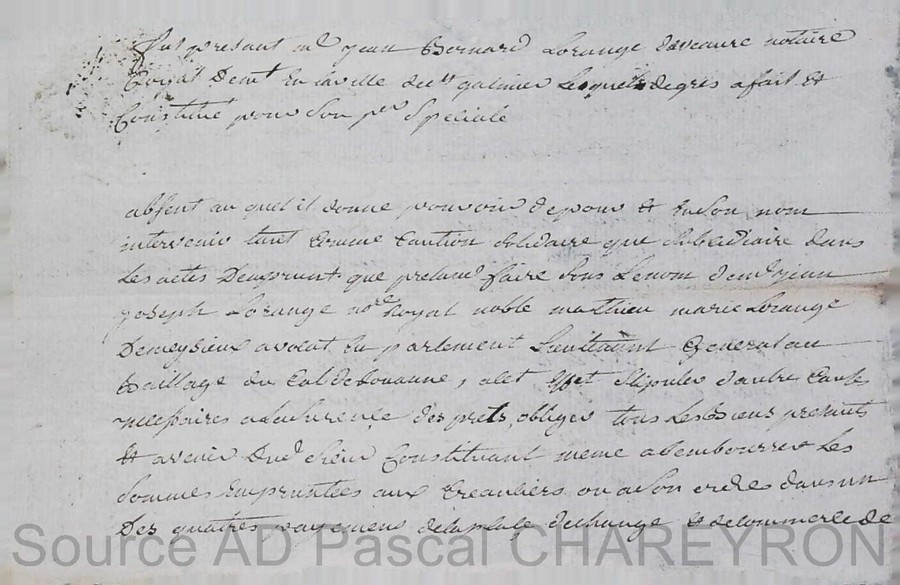 fut present me jean Bernard Lorange daveaure notaire
Royal demt en la ville de st galmier lequel de gres a fait et
Constitué pour son pr Spéciale
absent au quel il donne pouvoir de pour et en son nom
intervenir tant comme Caution solidaire que subsidiaire dans
les actes Demprunt que pretend faire sous le nom de me jean
joseph Lorange nore Royal noble mathieu marie Lorange
Demeysieux avocat en parlement Lieutenant General au
Baillage du bal de bouanne, a cet effet stipuler d'autres Causes
necessaires a des prets, obliger tous les Biens presents
et avenir Dud sieur Constituant meme a Rembourrer les
sommes Empruntées aux Creanciers ou a son ordre dans un
Des quatres payemens de la place de change et de commerce de
Source AD Pascal CHAREYRON